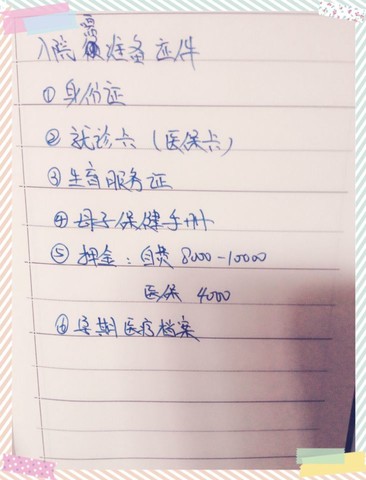 入院需准备证件
①身份证
②就诊卡（医保卡）
③生育服务证
④母子保健手册
⑤押金：自费 8000-10000
医保 4000
⑥孕期医疗档案